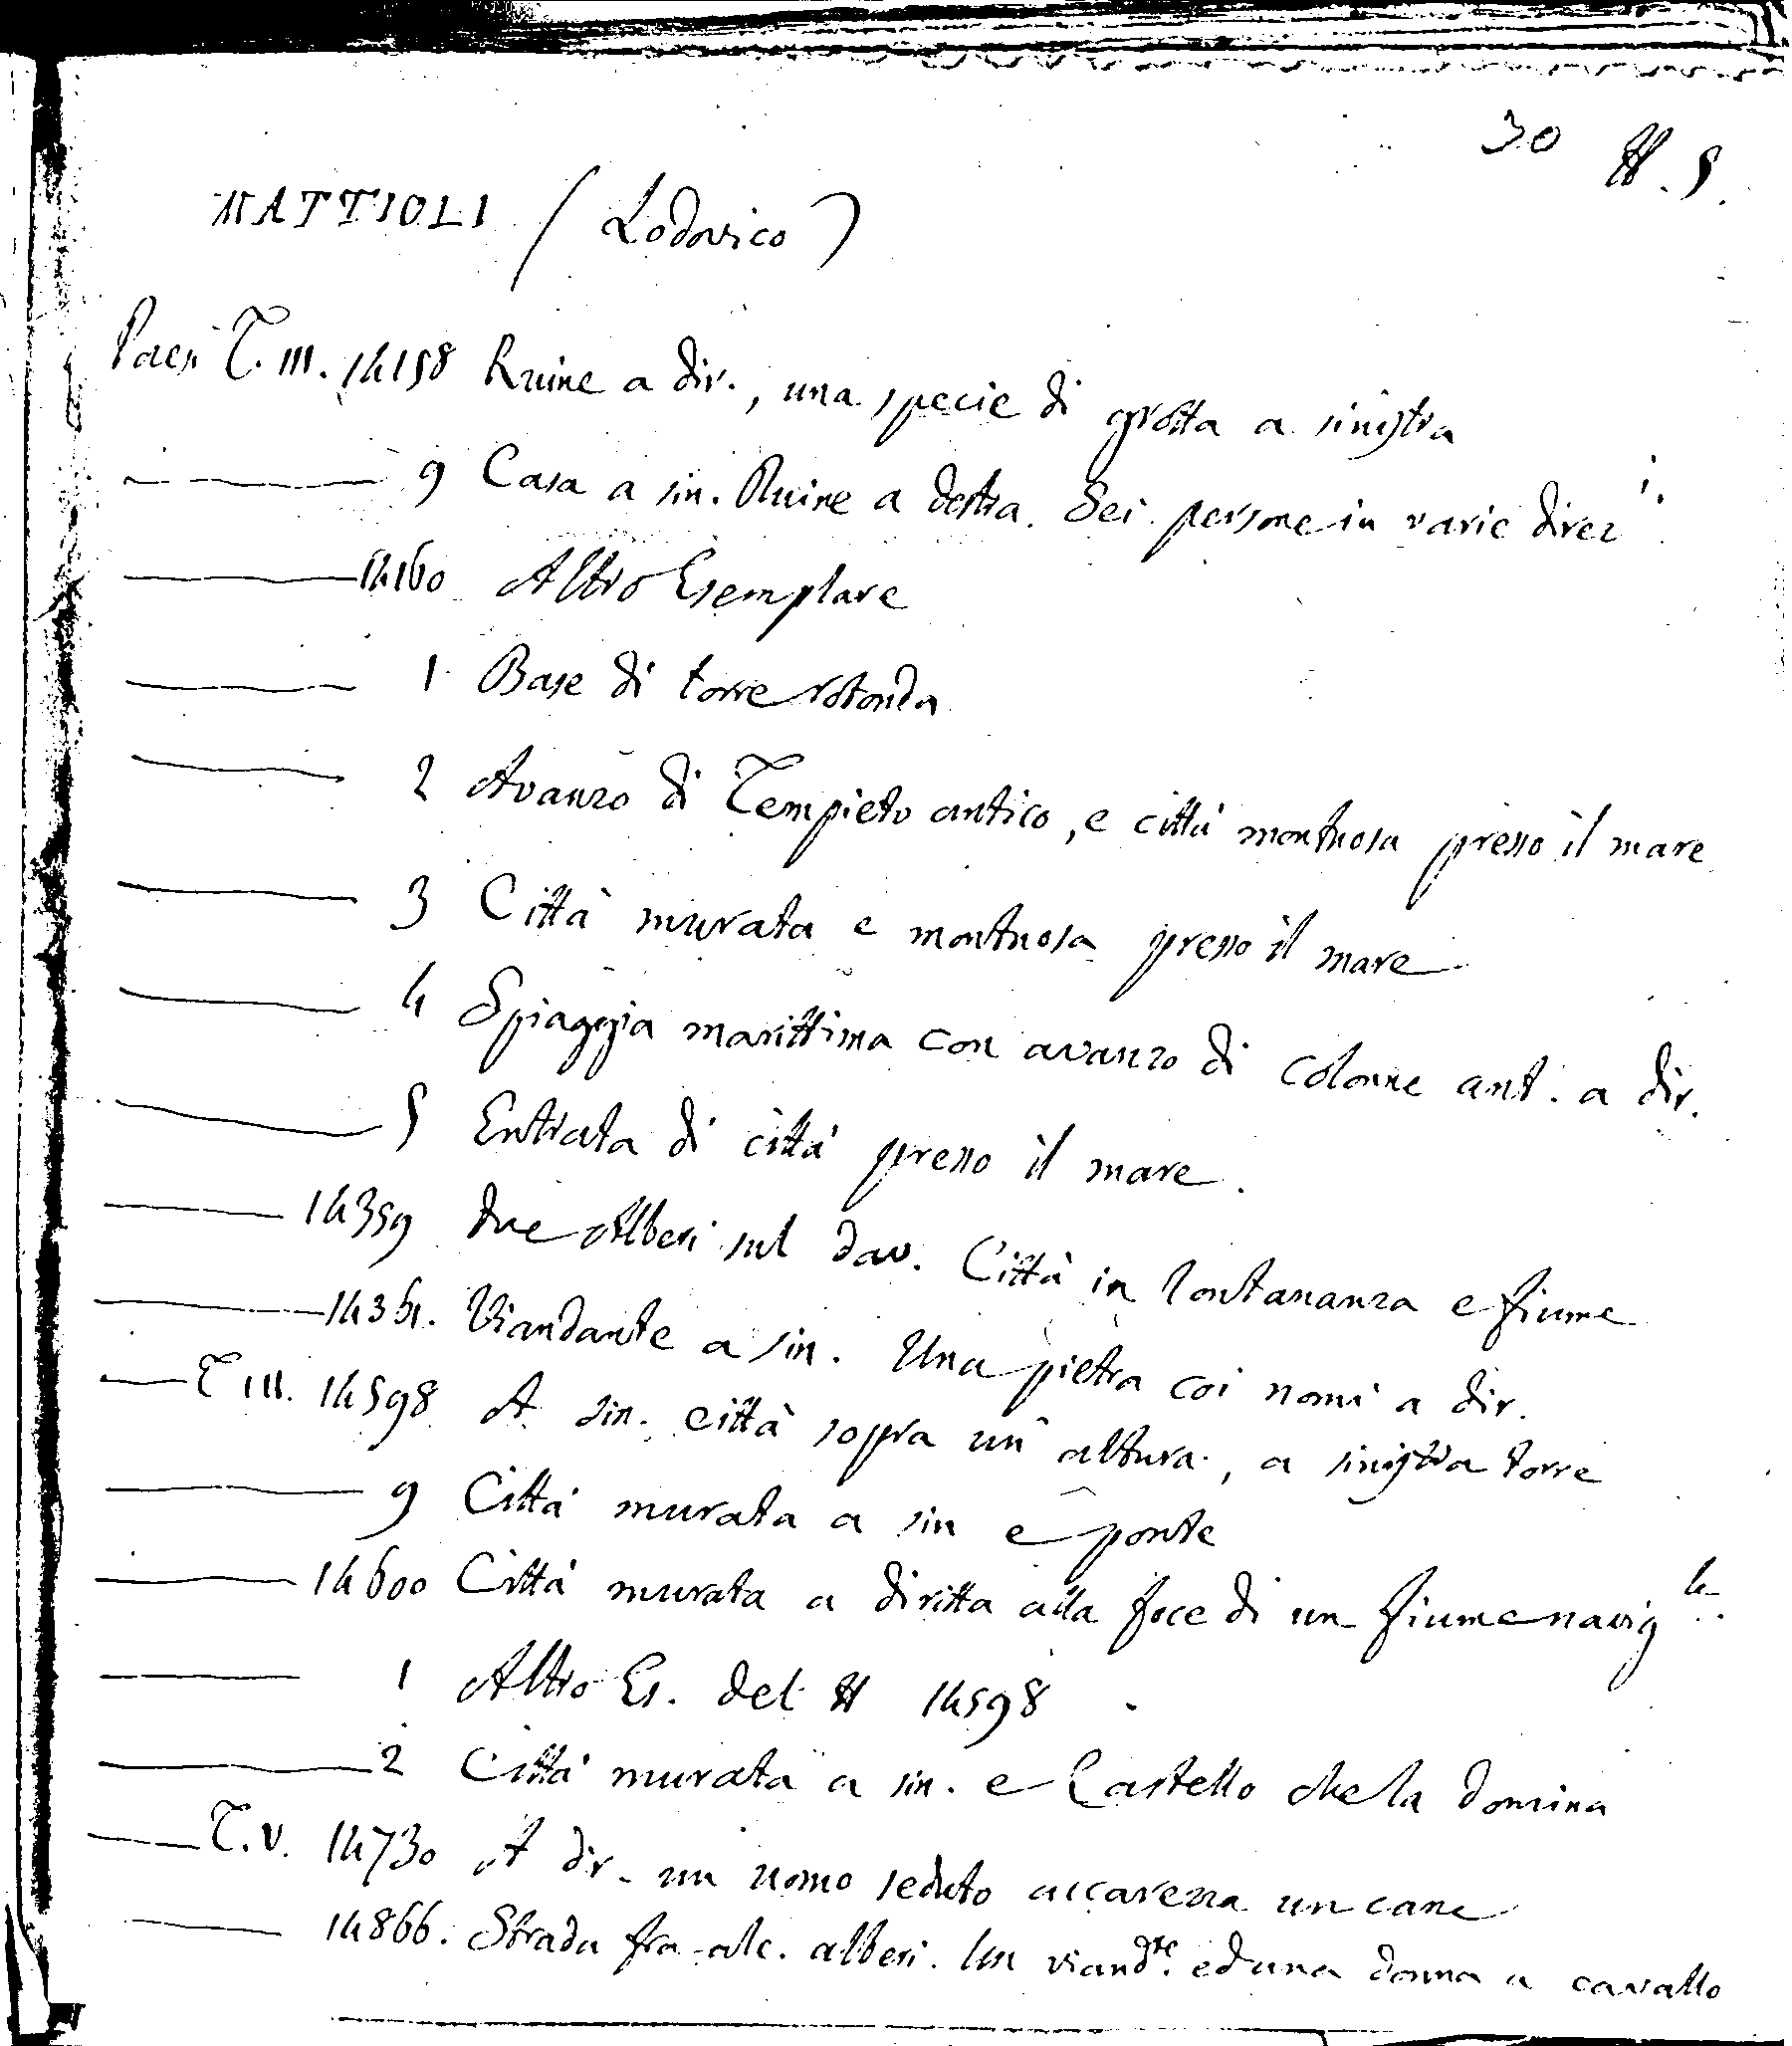 30 N. 5.
MATTIOLI (Lodovico)
Paesi T. III. 14158 Ruine a dir., una specie di grotta a sinistra
9 Casa a sin. Ruine a destra. Sei persone in varie direz i.
14160 Altro Esemplare
1 Base di torre rotonda
2 Avanzo di Tempieto antico, e città montuosa presso il mare
3 Città murata e montuosa presso il mare
4 Spiaggia marittima con avanzo di colonne ant. a dir.
5 Entrata di città presso il mare.
14359 Due Alberi sul dav. Città in lontananza e fiume
14361. Viandante a sin. Una pietra coi nomi a dir.
T III. 14598 A sin. città sopra un altura, a sinistra torre
9 Città murata a sin e ponte
14600 Città murata a diritta alla foce di un fiume navig le.
1 Altro Es. del N 14598
2 Città murata a sin. e Castello che la domina
T. V. 14730 A dir. un uomo seduto accarezza un cane
14866. Strada fra alc. alberi. Un viandte. ed una donna a cavallo